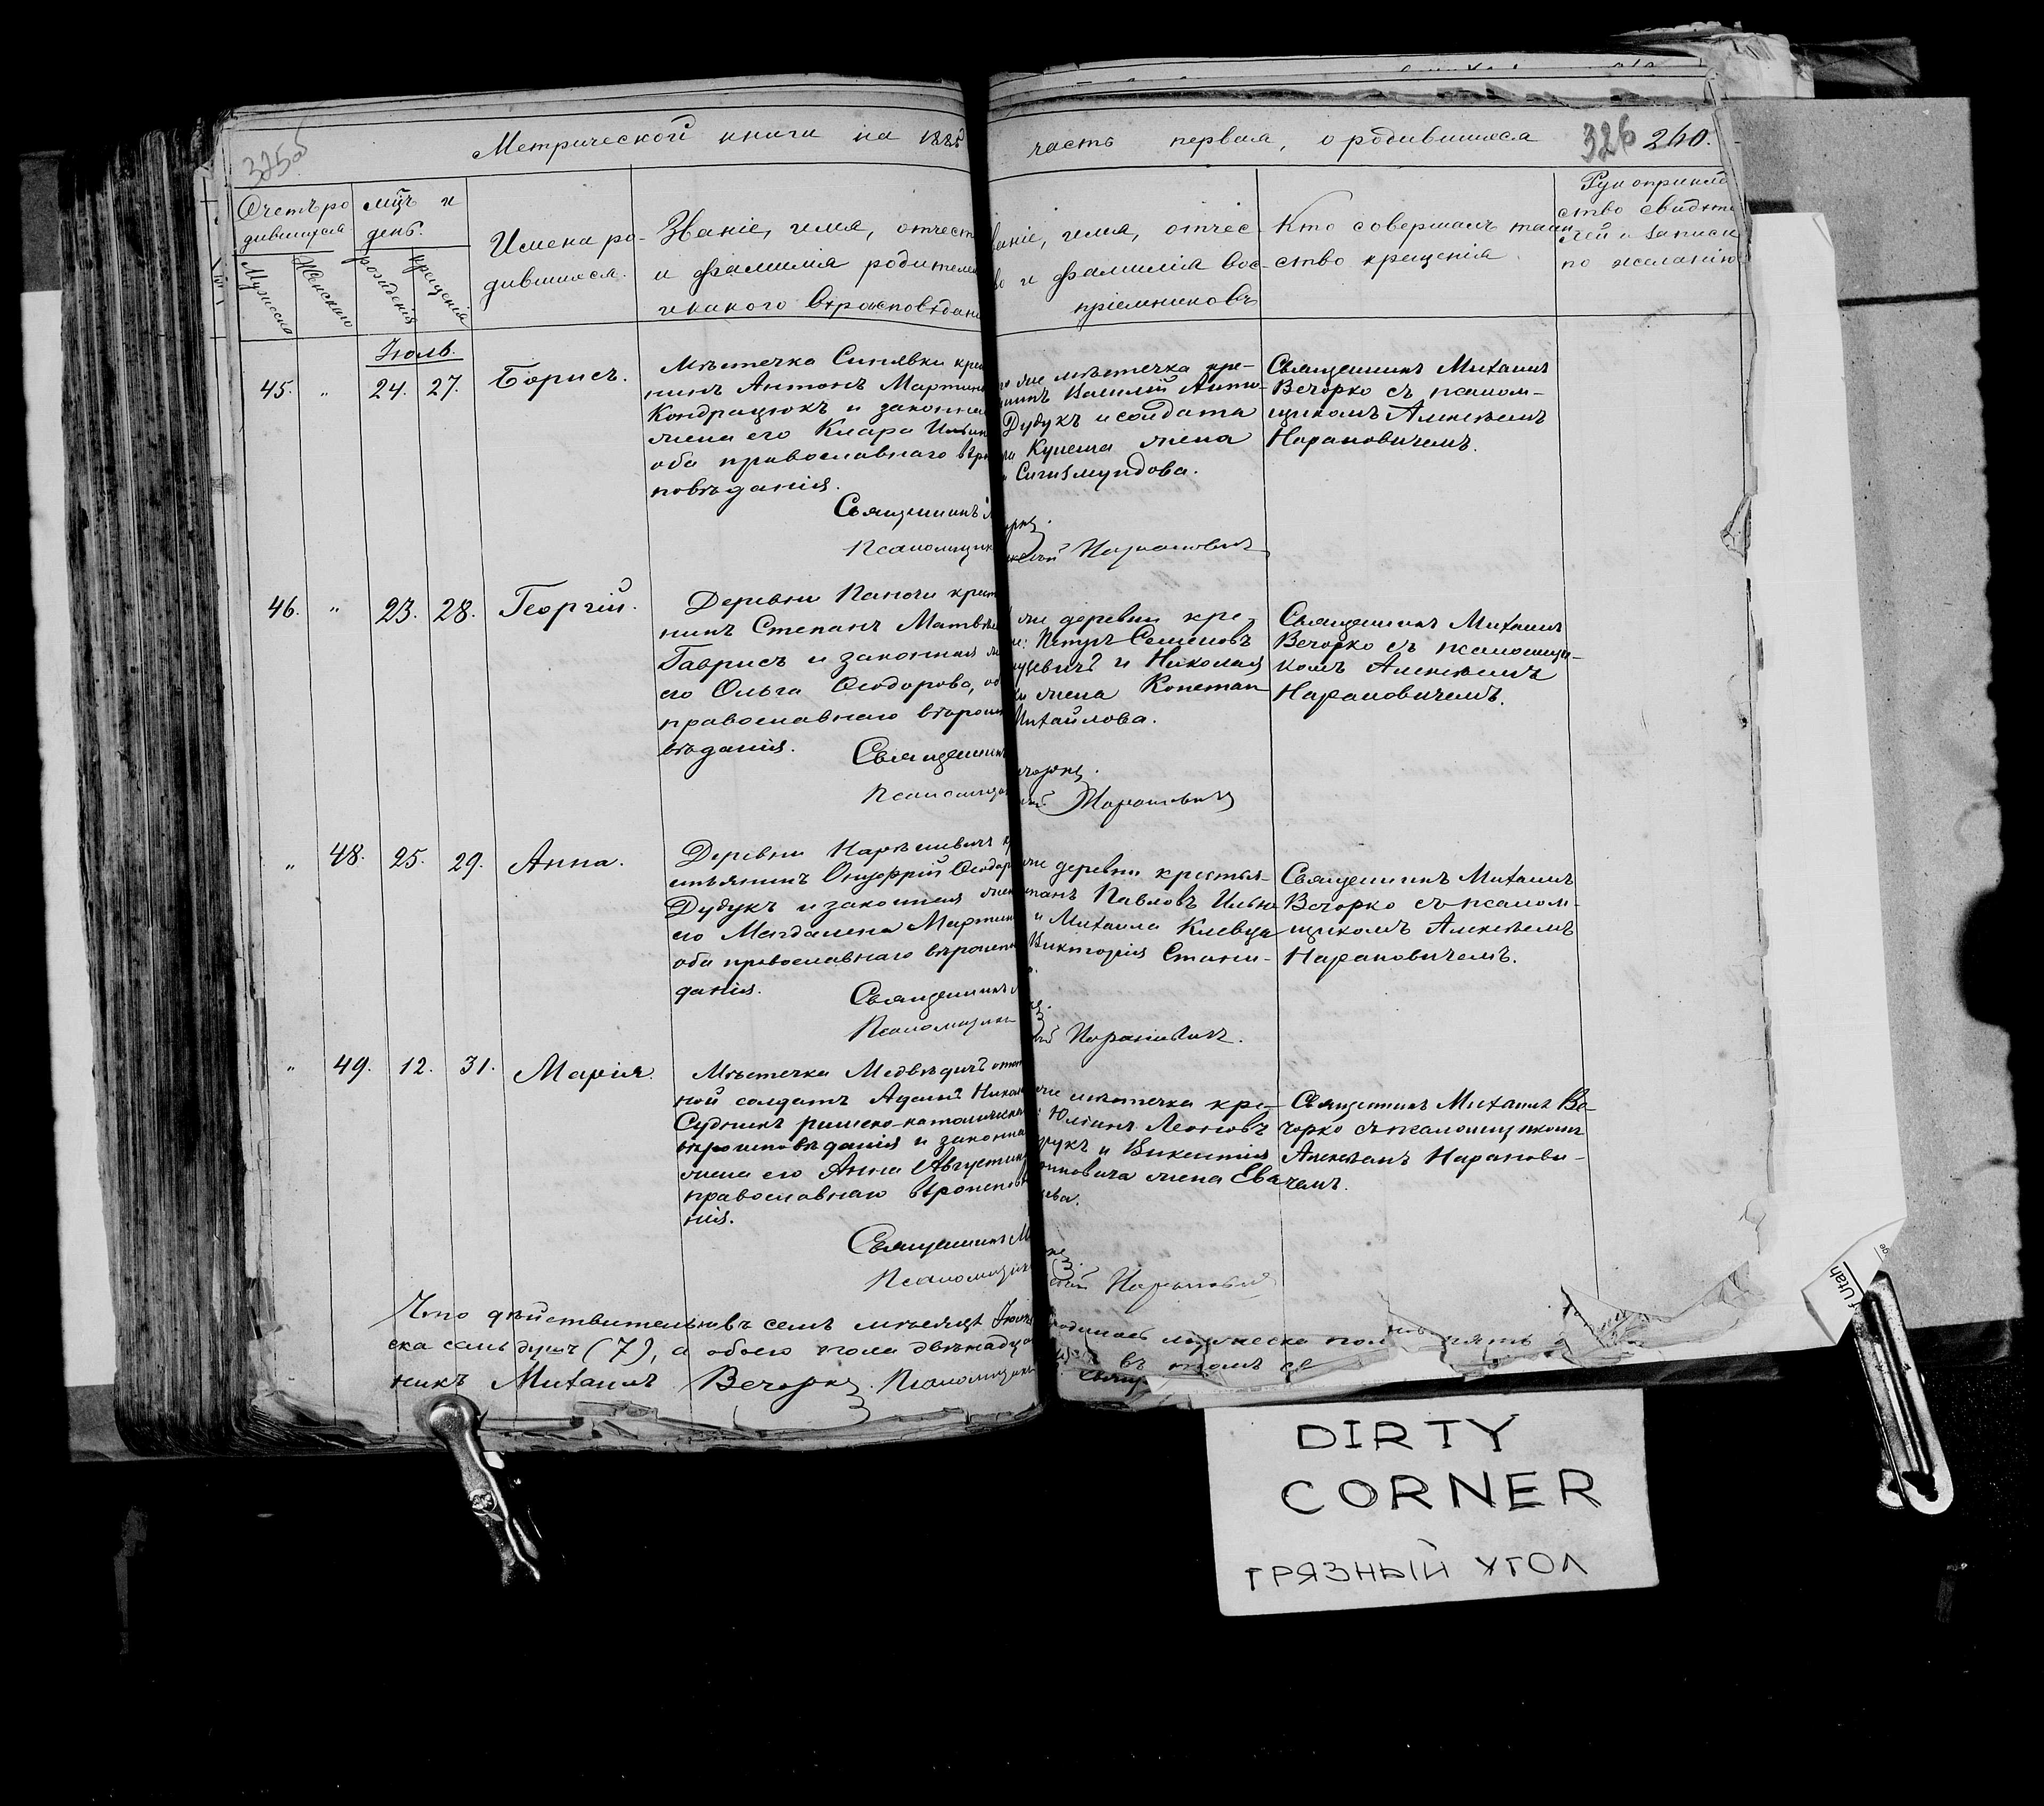 325об
Метрической книги на
часть первая, о родившихся
326 260.
Счетъ ро
дившихся
Мужеска
Женскаго
мц̃ъ и
день.
рожденія
крещенія
Имена ро-
дившихся.
Званіе, имя, отчест
и фамилія родителе
и какого вѣроисповѣдан
ваніе, имя, отчес-
во и фамилія вос-
пріемниковъ
Кто совершалъ таин
ство крещенія
Рукоприкла
ство свидѣте
лей о записи
по желанію
Іюль.
45. „ 24. 27. Борисъ.
Мѣстечка Синявки крес
нинъ Антонъ Мартин
Кондрацюкъ и законная
жена его Клара Ильин
оба православнаго вѣрои
повѣданія.
Священникъ М
Псаломщикъ
го же мѣстечка кре-
нинъ Василій Анто-
Дудукъ и солдата
Кунеша жена
Сигизмундова.
орко.
ексѣй Нарановичъ
Священникъ Михаилъ
Вечорко съ псалом-
щикомъ Алексѣемъ
Нарановичемъ.
46. „ 23. 28. Георгій.
Деревни Каночи крест
нинъ Степанъ Матвѣе
Гаврисъ и законная же
его Ольга Ѳеодорова, об
православнаго вѣроиспо
вѣданія.
Священникъ
Псаломщикъ
же деревни кре-
не: Петръ Семеновъ
и Николая
жена Констан
Михайлова.
ечорко.
Нарановичъ
Священникъ Михаилъ
Вечорко съ псаломщи-
комъ Алексѣемъ
Нарановичемъ.
„ 48. 25. 29. Анна.
Деревни
стьянинъ Онуфрій Ѳеодор
Дудукъ и законная жен
его Магдалена Мартин
оба православнаго вѣроиспов
данія.
Священникъ М
Псаломщикъ
же деревни крестья-
панъ Павловъ Илью
и Михаила Клевца
Викторія Стани-
ко.
Нарановичъ.
Священникъ Михаилъ
Вечорко съ псалом-
щикомъ Алексѣемъ
Нарановичемъ.
„ 49. 12. 31. Марія.
Мѣстечка Медвѣдичъ отпу
ной солдатъ Адамъ Никол
Судникъ римско-католическа
вѣроисповѣданія и законна
жена его Анна Августин
православнаго вѣроисповѣ
нія.
Священникъ М
Псаломщикъ
же мѣстечка кре-
: Юліанъ Леоновъ
и Викентія
жена Ева
ева.
рко
Нарановичъ
Священникъ Михаилъ Ве-
чорко съ псаломщикомъ
Алексѣемъ Наранови-
чемъ.
Что дѣйствительно въ семъ мѣсяцѣ Іюлѣ родилось мужеска пола пять
ска семь душъ (7), а обоего пола двѣнадца въ томъ св
никъ Михаилъ Вечорко. Псаломщикъ
DIRTY
CORNER
ГРЯЗНЫЙ УГОЛ
f Utah